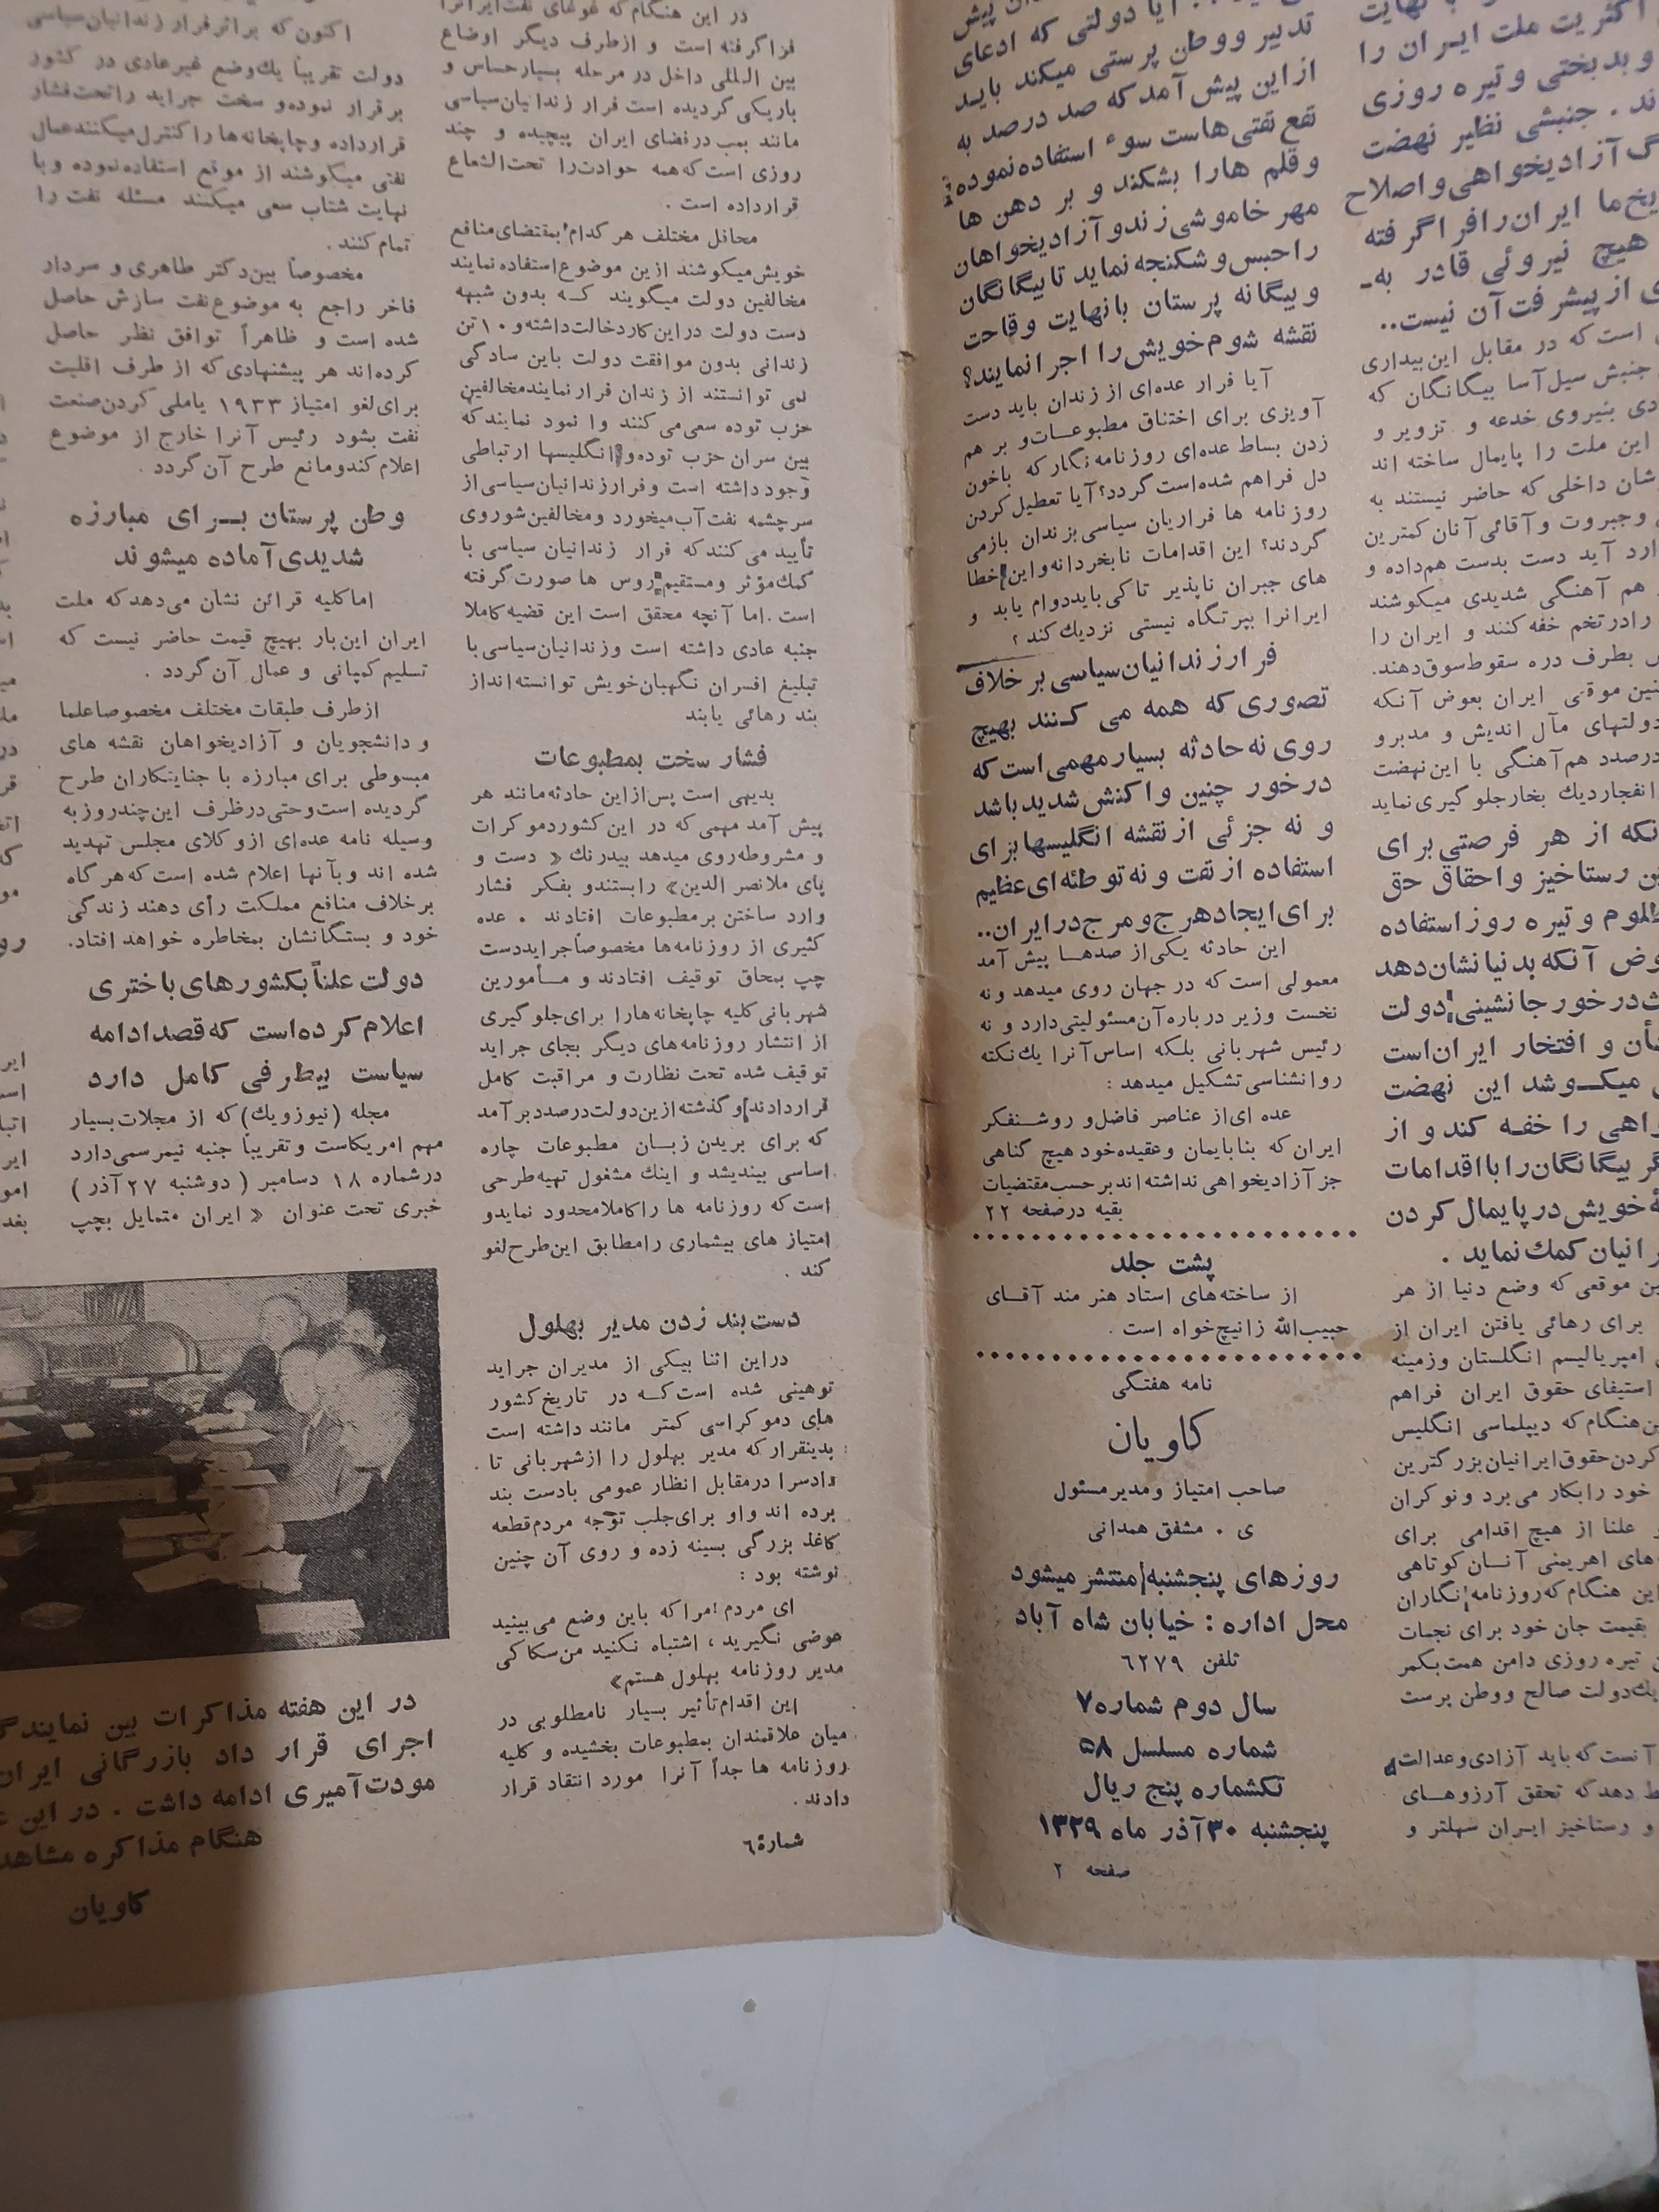 اکثریت ملت ایران را
و بدبختی و تیره روزی
اند . جنبشی نظیر نهضت
آزادیخواهی و اصلاح
ما ایران را فرا گرفته
هیچ نیروئی قادر به-
از پیشرفت آن نیست..
است که در مقابل این بیداری
جنبش سیل آسا بیگانگان که
بنیروی خدعه و تزویر و
این ملت را پایمال ساخته اند
داخلی که حاضر نیستند به
و جبروت و آقائی آنان کمترین
وارد آید دست بدست هم داده و
هم آهنگی شدیدی میکوشند
را در تخم خفه کنند و ایران را
بطرف دره سقوط سوق دهند.
موقعی ایران بعوض آنکه
دولتهای مآل اندیش و مدبر و
درصدد هم آهنگی با این نهضت
انفجار دیك بخار جلوگیری نماید
از هر فرصتی برای
رستاخیز و احقاق حق
و تیره روز استفاده
آنکه بدنیا نشان دهد
درخور جانشینی دولت
و افتخار ایران است
میکـوشد این نهضت
را خفه کند و از
بیگانگان را با اقدامات
خویش در پایمال کردن
کمك نماید .
موقعی که وضع دنیا از هر
برای رهائی یافتن ایران از
امپریالیسم انگلستان و زمینه
استیفای حقوق ایران فراهم
هنگام که دیپلماسی انگلیس
کردن حقوق ایرانیان بزرگترین
خود را بکار می برد و نوکران
علنا از هیچ اقدامی برای
های اهریمنی آنـان کوتاهی
این هنگام که روزنامه نگاران
بقیمت جان خود برای نجات
تیره روزی دامن همت بکمر
یك دولت صالح و وطن پرست
آنست که باید آزادی و عدالت
دهد که تحقق آرزوهـای
و رستاخیز ایران سهلتر و
آیا دولتی که ادعای
تدبیر و وطن پرستی میکند بایـد
از این پیش آمد که صد درصد به
نفع نفتی هاست سوء استفاده نموده
و قلم ها را بشکند و بر دهن ها
مهر خاموشی زند و آزادیخواهان
را حبس و شکنجه نماید تا بیگانگان
و بیگانه پرستان با نهایت وقاحت
نقشه شوم خویش را اجرا نمایند؟
آیا فرار عده ای از زندان باید دست
آویزی برای اختناق مطبوعـات و بر هم
زدن بساط عده ای روزنامه نگار که با خون
دل فراهم شده است گردد؟ آیا تعطیل کردن
روزنامه ها فراریان سیاسی بزندان بازمی
گردند؟ این اقدامات نابخردانه و این خطا
های جبران ناپذیر تا کی باید دوام یابد و
ایران را بپرتگاه نیستی نزدیك کند ؟
فرار زندانیان سیاسی بر خلاف
تصوری که همه می کـنند بهیچ
روی نه حادثه بسیار مهمی است که
درخور چنین واکنش شدید باشد
و نه جزئی از نقشه انگلیسها برای
استفاده از نفت و نه توطئه ای عظیم
برای ایجاد هرج و مرج در ایران..
این حادثه یکی از صدهـا پیش آمد
معمولی است که در جهان روی میدهد و نه
نخست وزیر درباره آن مسئولیتی دارد و نه
رئیس شهربانی بلکه اساس آنرا یك نکته
روانشناسی تشکیل میدهد :
عده ای از عناصر فاضل و روشـنفکر
ایران که بنا بایمان و عقیده خود هیچ گناهی
جز آزادیخواهی نداشته اند بر حسب مقتضیات
بقیه در صفحه ۲۲
پشت جلد
از ساخته های استاد هنر مند آقـای
حبیب الله زانیچ خواه است .
نامه هفتگی
کاویان
صاحب امتیاز و مدیر مسئول
ی . مشفق همدانی
روزهای پنجشنبه منتشر میشود
محل اداره : خیابان شاه آباد
تلفن ۶۲۷۹
سال دوم شماره ۷
شماره مسلسل ۵۸
تکشماره پنج ریال
پنجشنبه ۳۰ آذر ماه ۱۳۲۹
صفحه ۲
در این هنگام که غوغای نفت ایران را
فرا گرفته است و از طرف دیگر اوضاع
بین المللی داخل در مرحله بسیار حساس و
باریکی گردیده است فرار زندانیان سیاسی
مانند بمب در فضای ایران پیچیده و چند
روزی است که همه حوادث را تحت الشعاع
قرار داده است .
محافل مختلف هر کدام بمقتضای منافع
خویش میکوشند از ین موضوع استفاده نمایند
مخالفین دولت میگویند کـه بدون شبهه
دست دولت در این کار دخالت داشته و ۱۰ تن
زندانی بدون موافقت دولت باین سادگی
نمی توانستند از زندان فرار نمایند مخالفین
حزب توده سعی می کنند وا نمود نمایند که
بین سران حزب توده و انگلیسها ارتباطی
وجود داشته است و فرار زندانیان سیاسی از
سرچشمه نفت آب میخورد و مخالفین شوروی
تأیید می کنند که فرار زندانیان سیاسی با
کمك مؤثر و مستقیم روس ها صورت گرفته
است . اما آنچه محقق است این قضیه کاملا
جنبه عادی داشته است و زندانیان سیاسی با
تبلیغ افسران نگهبان خویش توانسته اند از
بند رهائی یابند
فشار سخت بمطبوعات
بدیهی است پس از این حادثه مانند هر
پیش آمد مهمی که در این کشور دموکرات
و مشروطه روی میدهد بیدرنك « دست و
پای ملا نصر الدین» را بستند و بفکر فشار
وارد ساختن بر مطبوعات افتادند . عده
کثیری از روزنامه ها مخصوصاً جراید دست
چپ بمحاق توقیف افتادند و مـأمورین
شهربانی کلیه چاپخانه ها را برای جلوگیری
از انتشار روزنامه های دیگر بجای جراید
توقیف شده تحت نظارت و مراقبت کامل
قرار دادند و گذشته از ین دولت درصدد برآمد
که برای بریدن زبـان مطبوعات چاره
اساسی بیندیشد و اینك مشغول تهیه طرحی
است که روزنامه ها را کاملا محدود نماید و
امتیاز های بیشماری را مطابق این طرح لغو
کند .
دست بند زدن مدیر بهلول
در این اثنا بیکی از مدیران جراید
توهینی شده است کـه در تاریخ کشور
های دموکراسی کمتر مانند داشته است
بدینقرار که مدیر بهلول را از شهربانی تا
دادسرا در مقابل انظار عمومی با دست بند
برده اند و او برای جلب توجه مردم قطعه
کاغذ بزرگی بسینه زده و روی آن چنین
نوشته بود :
ای مردم ! مرا که باین وضع می بینید
عوضی نگیرید ، اشتباه نکنید من سکاکی
مدیر روزنامه بهلول هستم»
این اقدام تأثیر بسیار نامطلوبی در
میان علاقمندان بمطبوعات بخشیده و کلیه
روزنامه ها جداً آنرا مورد انتقاد قرار
دادند .
شمارۀ ۶
اکنون که بر اثر فرار زندانیان سیاسی
دولت تقریباً یك وضع غیر عادی در کشور
برقرار نموده و سخت جراید را تحت فشار
قرار داده و چاپخانه ها را کنترل میکنند عمال
نفتی میکوشند از موقع استفاده نموده و با
نهایت شتاب سعی میکنند مسئله نفت را
تمام کنند .
مخصوصاً بین دکتر طاهری و سردار
فاخر راجع به موضوع نفت سازش حاصل
شده است و ظاهراً توافق نظر حاصل
کرده اند هر پیشنهادی که از طرف اقلیت
برای لغو امتیاز ۱۹۳۳ یا ملی کردن صنعت
نفت بشود رئیس آنرا خارج از موضوع
اعلام کند و مانع طرح آن گردد .
وطن پرستان بـرای مبارزه
شدیدی آماده میشوند
اما کلیه قرائن نشان می دهد که ملت
ایران این بار بهیچ قیمت حاضر نیست که
تسلیم کمپانی و عمال آن گردد .
از طرف طبقات مختلف مخصوصا علما
و دانشجویان و آزادیخواهان نقشه های
مبسوطی برای مبارزه با جنایتکاران طرح
گردیده است و حتی در ظرف این چند روز به
وسیله نامه عده ای از وکلای مجلس تهدید
شده اند و بآنها اعلام شده است که هر گاه
بر خلاف منافع مملکت رأی دهند زندگی
خود و بستگانشان بمخاطره خواهد افتاد.
دولت علناً بکشورهای باختری
اعلام کرده است که قصد ادامه
سیاست بیطرفی کامل دارد
مجله (نیوزویك) که از مجلات بسیار
مهم امریکاست و تقریباً جنبه نیمرسمی دارد
در شماره ۱۸ دسامبر ( دوشنبه ۲۷ آذر )
خبری تحت عنوان « ایران متمایل بچپ
در این هفته مذاکرات بین
اجرای قرار داد بازرگانی ایران
مودت آمیزی ادامه داشت . در این
هنگام مذاکره
کاویان